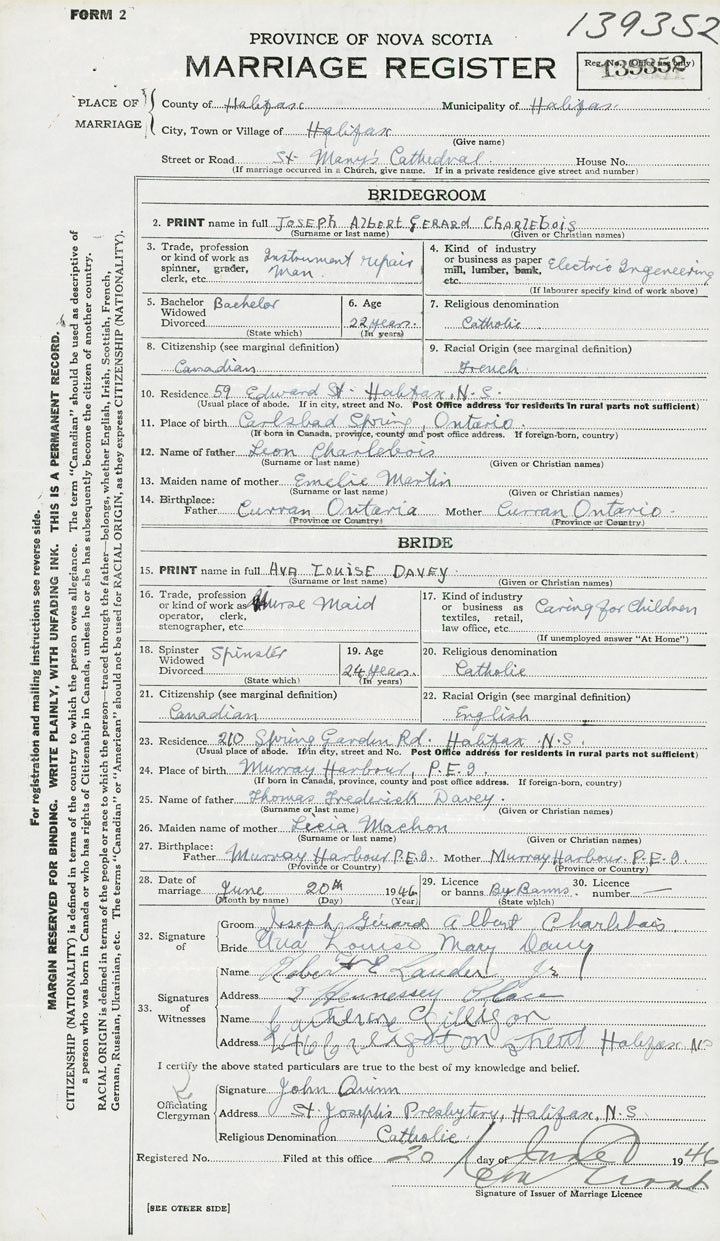 FORM 2
139352
PROVINCE OF NOVA SCOTIA
MARRIAGE REGISTER
Reg. No. (Office use only)
139352
PLACE OF MARRIAGE
County of Halifax Municipality of Halifax
City, Town or Village of Halifax
(Give name)
Street or Road St. Mary's Cathedral House No.
(If marriage occurred in a Church, give name. If in a private residence give street and number)
BRIDEGROOM
2. PRINT name in full JOSEPH ALBERT GERARD CHARLEBOIS
(Surname or last name) (Given or Christian names)
3. Trade, profession or kind of work as spinner, grader, clerk, etc. Instrument repair man.
4. Kind of industry or business as paper mill, lumber, bank, etc. Electric Ingeneering
(If labourer specify kind of work above)
5. Bachelor Widowed Divorced Bachelor
(State which)
6. Age 22 years.
(In years)
7. Religious denomination
Catholic
8. Citizenship (see marginal definition)
Canadian
9. Racial Origin (see marginal definition)
French
10. Residence 59 Edward St. Halifax, N.S.
(Usual place of abode. If in city, street and No. Post Office address for residents in rural parts not sufficient)
11. Place of birth Carlsbad Spring, Ontario.
(If born in Canada, province, county and post office address. If foreign-born, country)
12. Name of father Leon Charlebois
(Surname or last name) (Given or Christian names)
13. Maiden name of mother Emelie Martin
(Surname or last name) (Given or Christian names)
14. Birthplace:
Father Curran Ontaria Mother Curran Ontario.
(Province or Country) (Province or Country)
BRIDE
15. PRINT name in full AVA LOUISE DAVEY.
(Surname or last name) (Given or Christian names)
16. Trade, profession or kind of work as operator, clerk, stenographer, etc. Nurse Maid
17. Kind of industry or business as textiles, retail, law office, etc. Caring for Children
(If unemployed answer "At Home")
18. Spinster Widowed Divorced Spinster
(State which)
19. Age 24 years.
(In years)
20. Religious denomination
Catholic
21. Citizenship (see marginal definition)
Canadian
22. Racial Origin (see marginal definition)
English
23. Residence 210 Spring Garden Rd. Halifax N.S.
(Usual place of abode. If in city, street and No. Post Office address for residents in rural parts not sufficient)
24. Place of birth Murray Harbour, P.E.I.
(If born in Canada, province, county and post office address. If foreign-born, country)
25. Name of father Thomas Frederick Davey.
(Surname or last name) (Given or Christian names)
26. Maiden name of mother Licia Machon
(Surname or last name) (Given or Christian names)
27. Birthplace:
Father Murray Harbour P.E.I. Mother Murray Harbour. P.E.I.
(Province or Country) (Province or Country)
28. Date of marriage June 20th 1946
(Month by name) (Day) (Year)
29. Licence or banns By Banns.
(State which)
30. Licence number —
32. Signature of
Groom Joseph Gérard Albert Charlebois.
Bride Ava Louise Mary Davey
33. Signatures of Witnesses
Name Robert E Lauder Jr
Address Hennessey Place
Name Catherine Gilligan
Address street Halifax NS
I certify the above stated particulars are true to the best of my knowledge and belief.
Officiating Clergyman
Signature John Quinn
Address St. Joseph's Presbytery, Halifax, N.S.
Religious Denomination Catholic.
Registered No. Filed at this office 20 day of June 1946
Signature of Issuer of Marriage Licence
[SEE OTHER SIDE]
For registration and mailing instructions see reverse side.
MARGIN RESERVED FOR BINDING. WRITE PLAINLY, WITH UNFADING INK. THIS IS A PERMANENT RECORD.
CITIZENSHIP (NATIONALITY) is defined in terms of the country to which the person owes allegiance. The term "Canadian" should be used as descriptive of
a person who was born in Canada or who has rights of Citizenship in Canada, unless he or she has subsequently become the citizen of another country.
RACIAL ORIGIN is defined in terms of the people or race to which the person—traced through the father—belongs, whether English, Irish, Scottish, French,
German, Russian, Ukrainian, etc. The terms "Canadian" or "American" should not be used for RACIAL ORIGIN, as they express CITIZENSHIP (NATIONALITY).